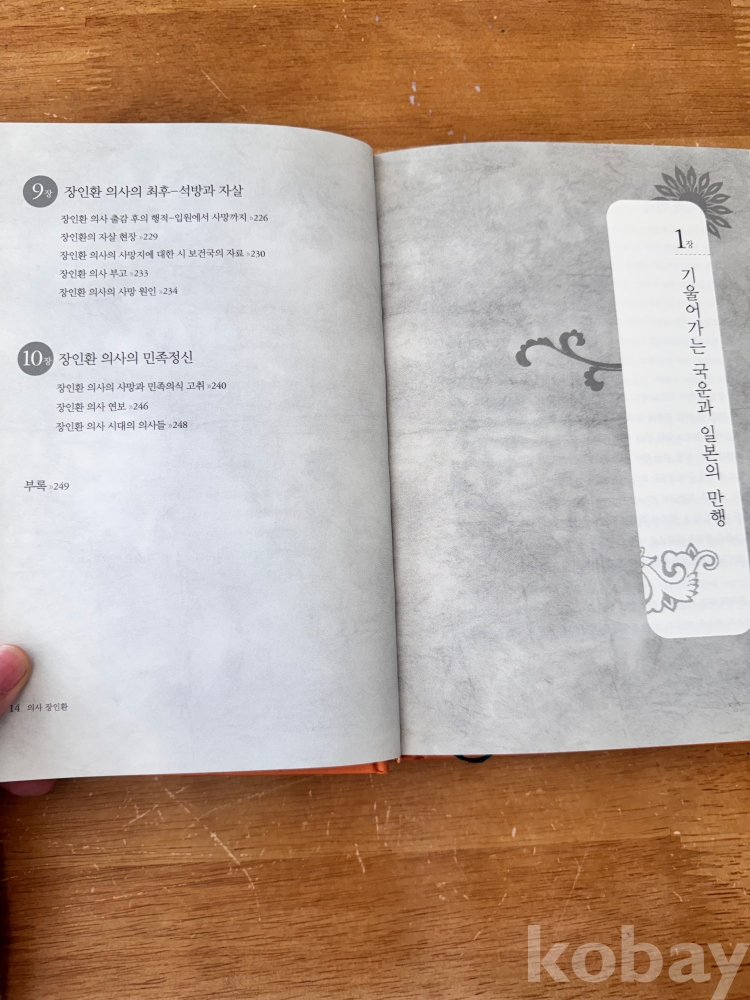 9장 장인환 의사의 최후–석방과 자살
장인환 의사 출감 후의 행적–입원에서 사망까지 »226
장인환의 자살 현장 »229
장인환 의사의 사망지에 대한 시 보건국의 자료 »230
장인환 의사 부고 »233
장인환 의사의 사망 원인 »234
10장 장인환 의사의 민족정신
장인환 의사의 사망과 민족의식 고취 »240
장인환 의사 연보 »246
장인환 의사 시대의 의사들 »248
부록 »249
14 의사 장인환
1장
기울어가는 국운과 일본의 만행
kobay